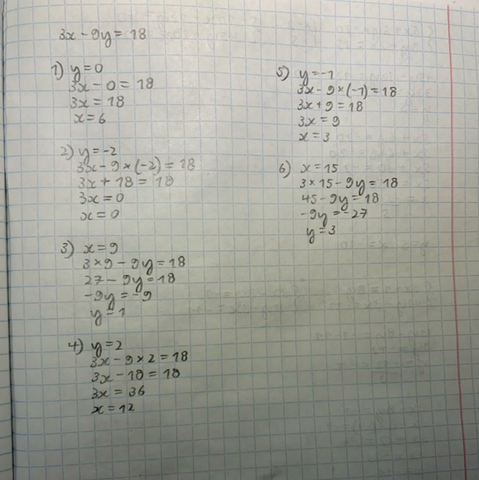 3x - 9y = 18
1) y = 0
3x - 0 = 18
3x = 18
x = 6
2) y = -2
3x - 9 × (-2) = 18
3x + 18 = 18
3x = 0
x = 0
3) x = 9
3 × 9 - 9y = 18
27 - 9y = 18
-9y = -9
y = 1
4) y = 2
3x - 9 × 2 = 18
3x - 18 = 18
3x = 36
x = 12
5) y = -1
3x - 9 × (-1) = 18
3x + 9 = 18
3x = 9
x = 3
6) x = 15
3 × 15 - 9y = 18
45 - 9y = 18
-9y = -27
y = 3